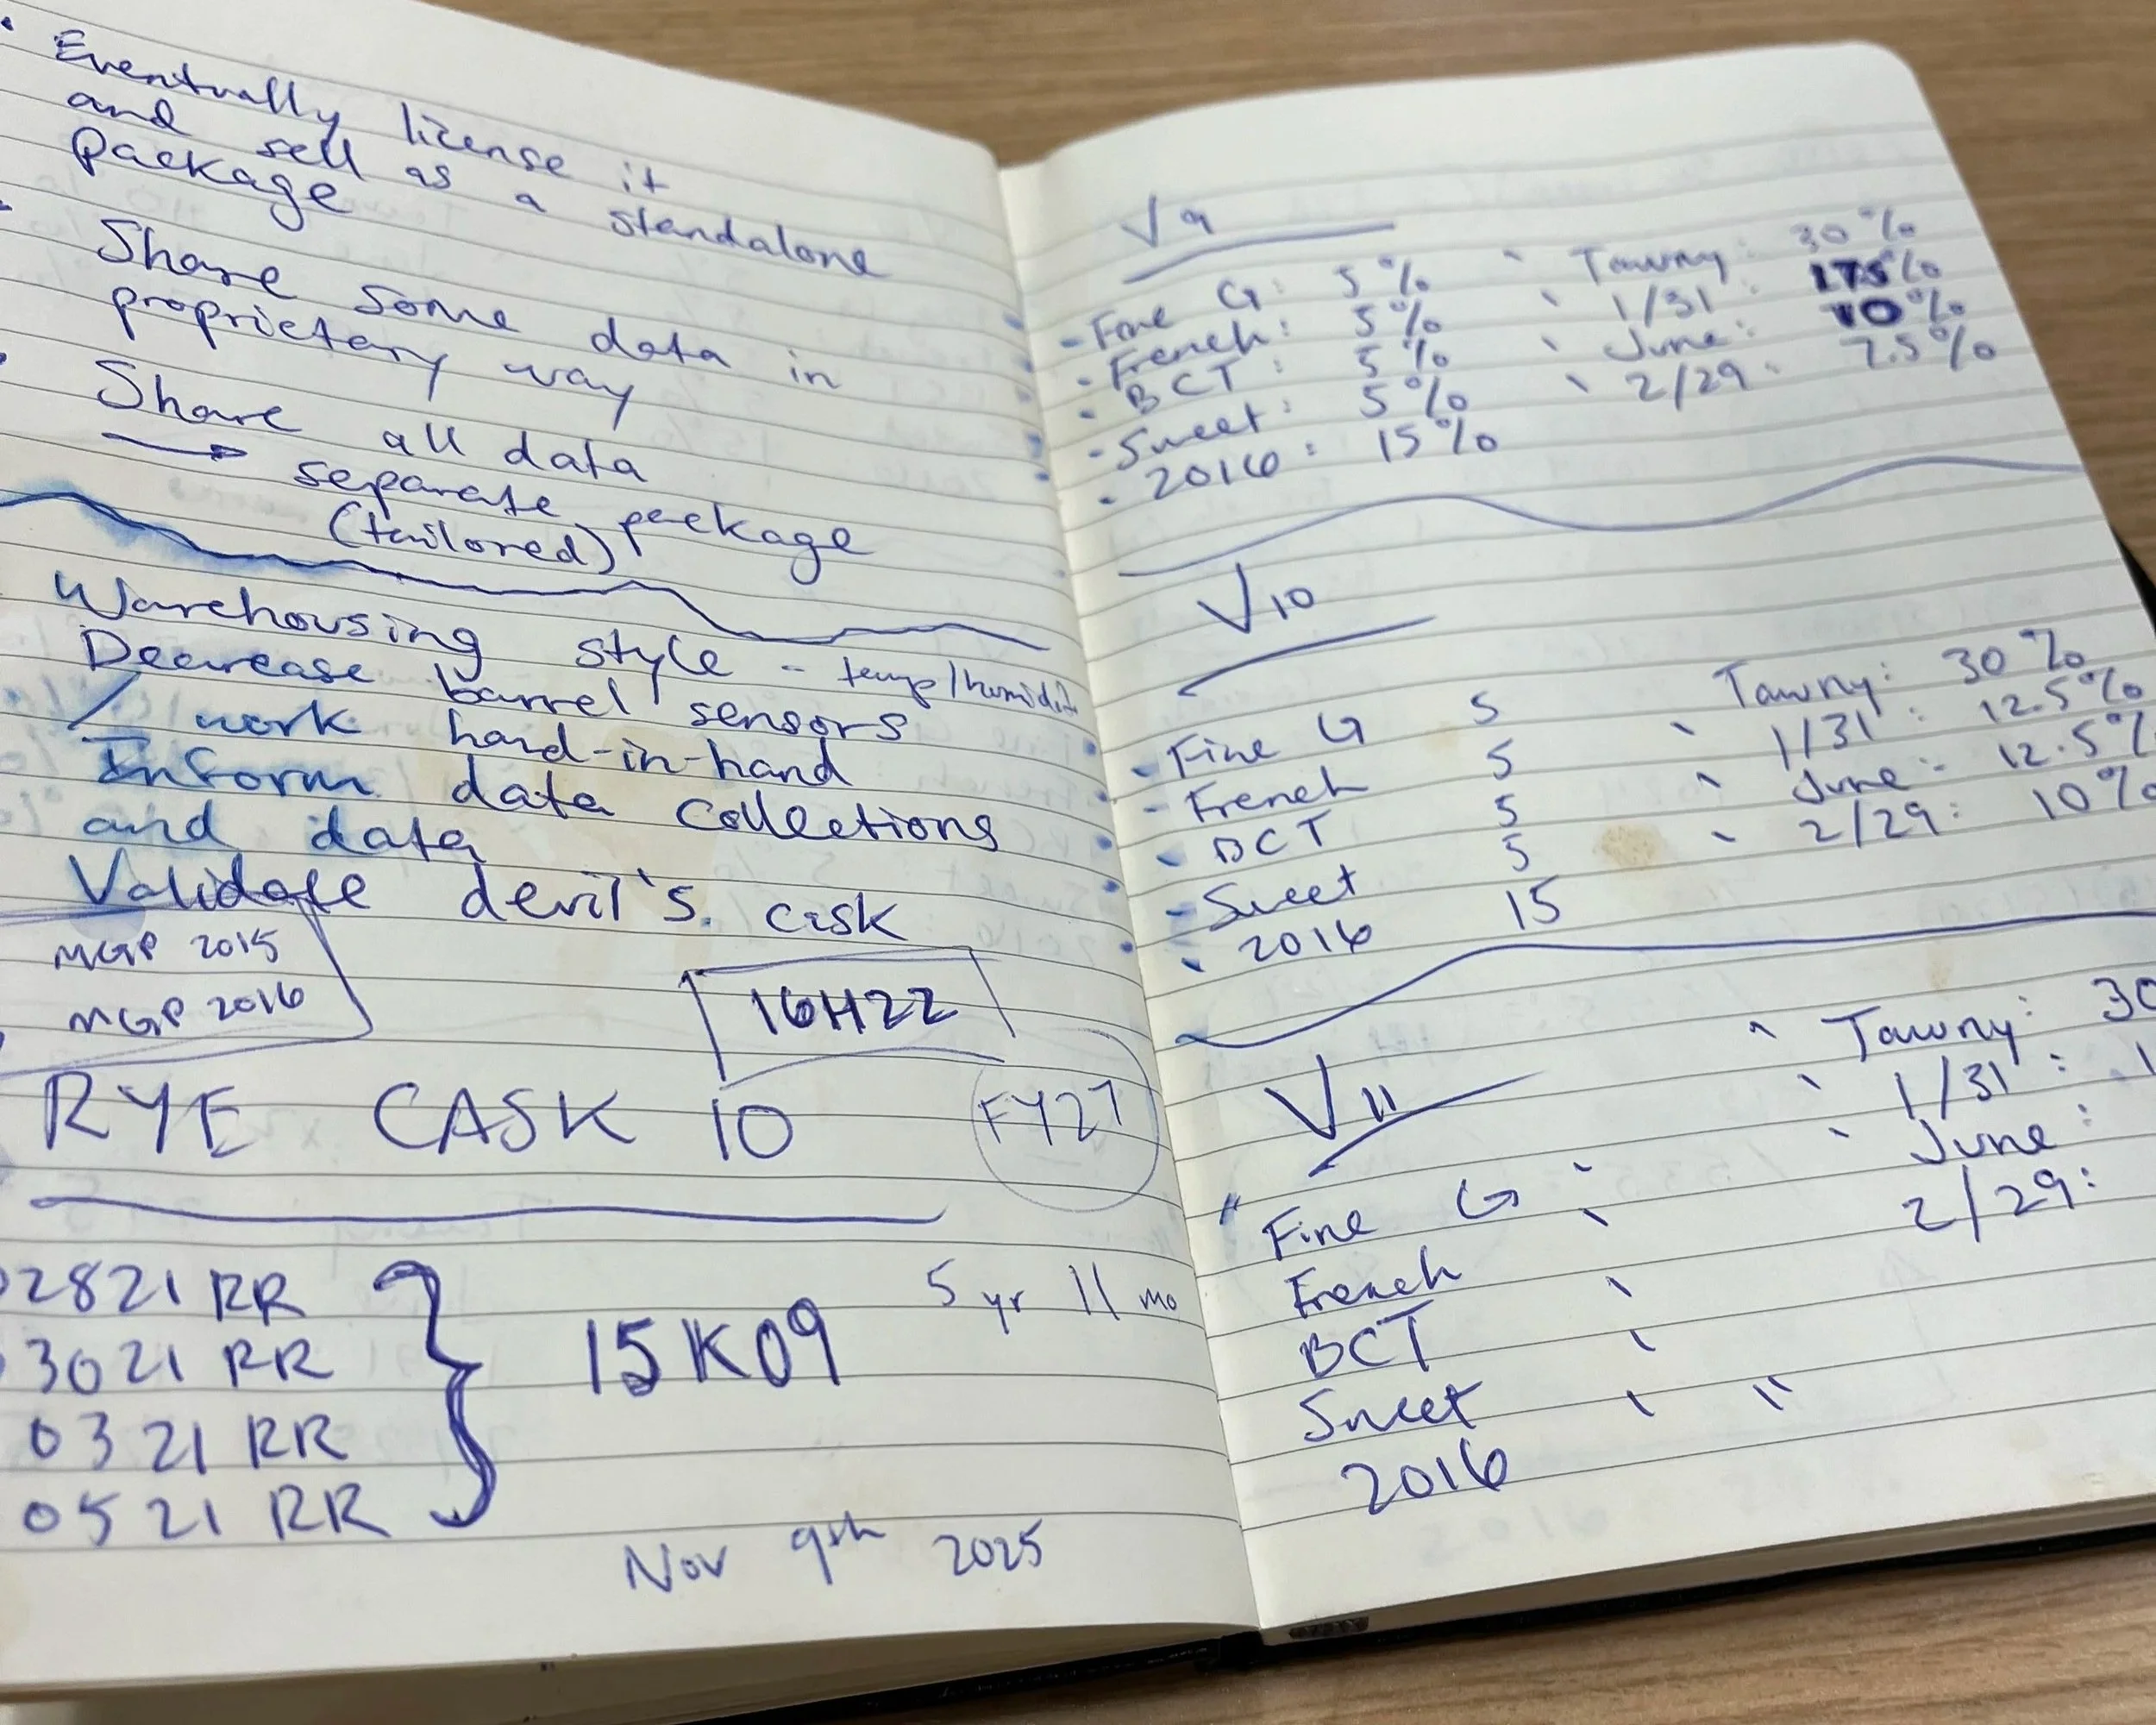 • Eventually license it
and sell as a standalone
package
Share some data in
proprietary way
Share all data
→ separate package
(tailored)
Warehousing style - temp/humidit
Decrease barrel sensors
/ work hand-in-hand
Inform data collections
and data
Validate devil's cask
MGP 2015
MGP 2016
16H22
RYE CASK 10
FY27
02821 RR
3021 RR
0321 RR
0521 RR
15K09
5 yr 11 mo
Nov 9th 2025
V9
- Fine G: 5%
- French: 5%
• BCT: 5%
- Sweet: 5%
• 2016: 15%
Tawny: 30%
1/31: 17.5%
June: 10%
2/29: 7.5%
V10
- Fine G 5
- French 5
BCT 5
- Sweet 5
2016 15
Tawny: 30%
1/31: 12.5%
June: 12.5%
2/29: 10%
V11
Fine G
French
BCT
Sweet
2016
Tawny: 30
1/31: 1
June:
2/29: